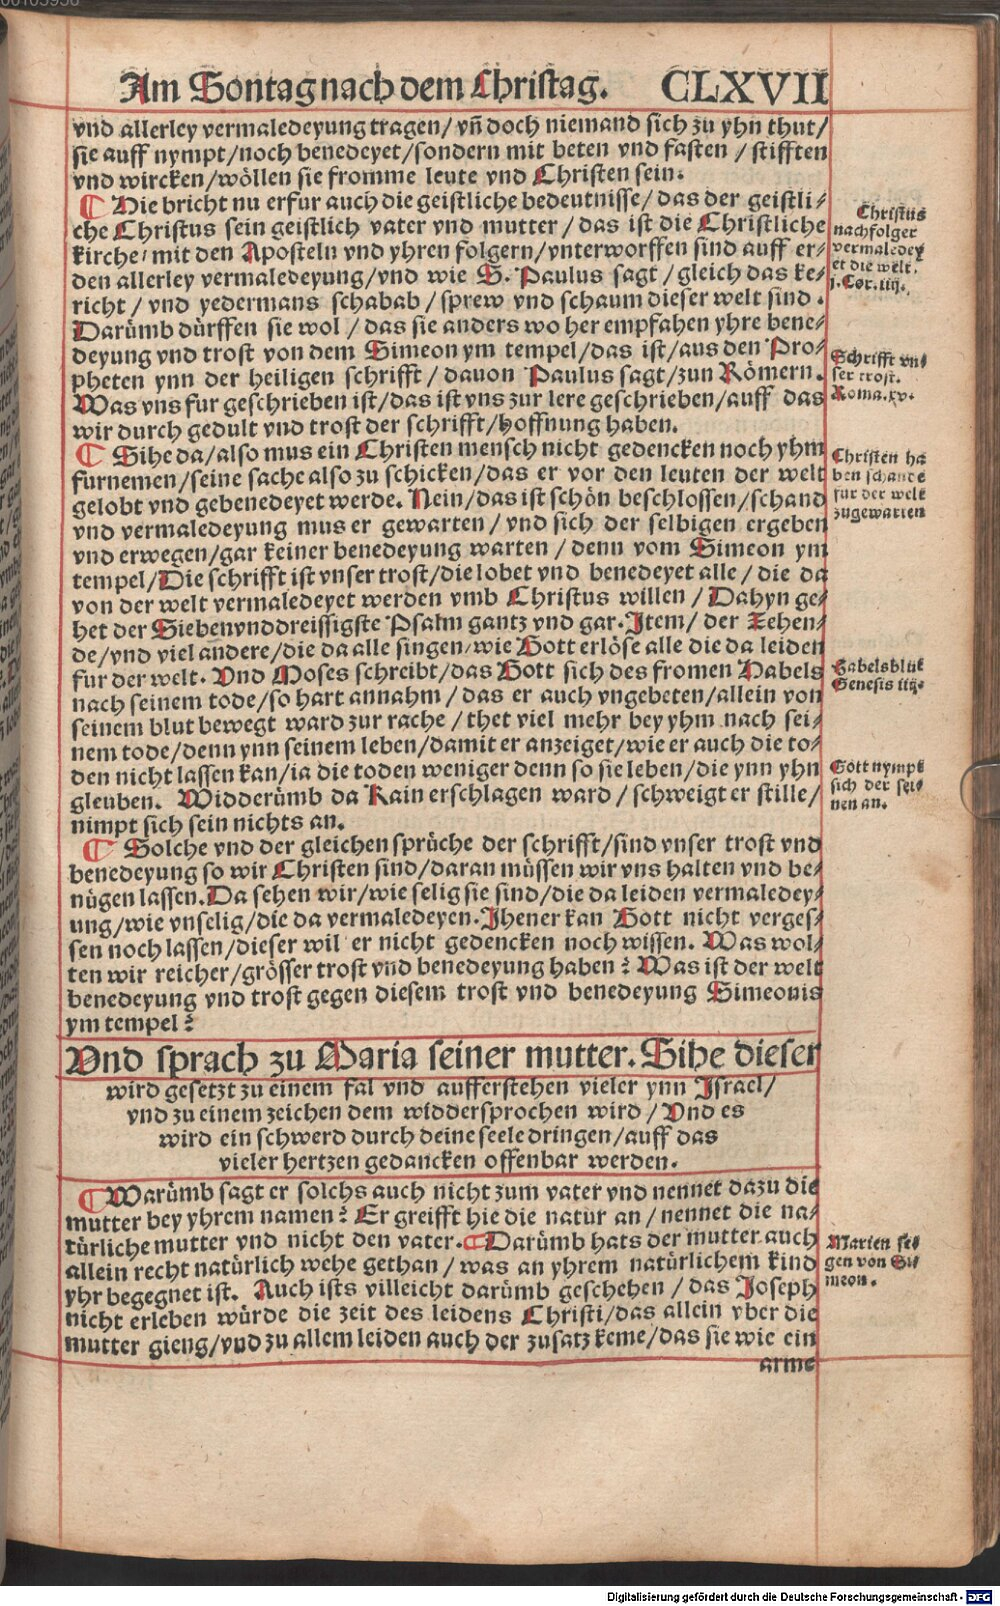 Am Sontag nach dem Christag. CLXVII
vnd allerley vermaledeyung tragen/ vñ doch niemand sich zu yhn thut/
sie auff nympt/noch benedeyet/sondern mit beten vnd fasten / stifften
vnd wircken/wöllen sie fromme leute vnd Christen sein.
¶ Hie bricht nu erfur auch die geistliche bedeutnisse/ das der geistli-
che Christus sein geistlich vater vnd mutter / das ist die Christliche
kirche/ mit den Aposteln vnd yhren folgern/ vnterworffen sind auff er-
den allerley vermaledeyung/vnd wie S. Paulus sagt / gleich das ke-
richt / vnd yedermans schabab / sprew vnd schaum dieser welt sind.
Darümb dürffen sie wol / das sie anders wo her empfahen yhre bene-
deyung vnd trost von dem Simeon ym tempel/das ist/aus den Pro-
pheten ynn der heiligen schrifft / dauon Paulus sagt/zun Römern.
Was vns fur geschrieben ist/das ist vns zur lere geschrieben/auff das
wir durch gedult vnd trost der schrifft/hoffnung haben.
¶ Sihe da/also mus ein Christen mensch nicht gedencken noch yhm
furnemen/seine sache also zu schicken/das er vor den leuten der welt
gelobt vnd gebenedeyet werde. Nein/das ist schön beschlossen/schand
vnd vermaledeyung mus er gewarten / vnd sich der selbigen ergeben
vnd erwegen/gar keiner benedeyung warten / denn vom Simeon ym
tempel/Die schrifft ist vnser trost/die lobet vnd benedeyet alle / die da
von der welt vermaledeyet werden vmb Christus willen / Dahyn ge-
het der Siebenvnddreissigste Psalm gantz vnd gar. Item/ der Zehen-
de/vnd viel andere/die da alle singen/wie Gott erlöse alle die da leiden
fur der welt. Vnd Moses schreibt/das Gott sich des fromen Habels
nach seinem tode/so hart annahm / das er auch vngebeten/allein von
seinem blut bewegt ward zur rache / thet viel mehr bey yhm nach sei-
nem tode/denn ynn seinem leben/damit er anzeiget/wie er auch die to-
den nicht lassen kan/ia die toden weniger denn so sie leben/die ynn yhn
gleuben. Widderümb da Kain erschlagen ward / schweigt er stille/
nimpt sich sein nichts an.
¶ Solche vnd der gleichen sprüche der schrifft/sind vnser trost vnd
benedeyung so wir Christen sind/daran müssen wir vns halten vnd be-
nügen lassen. Da sehen wir/wie selig sie sind/die da leiden vermaledey-
ung/wie vnselig/die da vermaledeyen. Jhener kan Gott nicht verges-
sen noch lassen/dieser wil er nicht gedencken noch wissen. Was wol-
ten wir reicher/grösser trost vnd benedeyung haben? Was ist der welt
benedeyung vnd trost gegen diesem trost vnd benedeyung Simeonis
ym tempel?
Vnd sprach zu Maria seiner mutter. Sihe dieser
wird gesetzt zu einem fal vnd aufferstehen vieler ynn Israel/
vnd zu einem zeichen dem widdersprochen wird / Vnd es
wird ein schwerd durch deine seele dringen/auff das
vieler hertzen gedancken offenbar werden.
¶ Warümb sagt er solchs auch nicht zum vater vnd nennet dazu die
mutter bey yhrem namen? Er greifft hie die natur an / nennet die na-
türliche mutter vnd nicht den vater. ¶ Darümb hats der mutter auch
allein recht natürlich wehe gethan / was an yhrem natürlichem kind
yhr begegnet ist. Auch ists villeicht darümb geschehen / das Joseph
nicht erleben würde die zeit des leidens Christi/das allein vber die
mutter gieng/vnd zu allem leiden auch der zusatz keme/das sie wie ein
arme
Christus
nachfolger
vermaledey
et die welt.
j. Cor. iiij.
Schrifft vn-
ser trost.
Roma. xv.
Christen ha
ben schande
fur der welt
zugewarten
Habels blut
Genesis iiij.
Gott nympt
sich der sei-
nen an.
Marien se-
gen von Si-
meon.
Digitalisierung gefördert durch die Deutsche Forschungsgemeinschaft - DFG